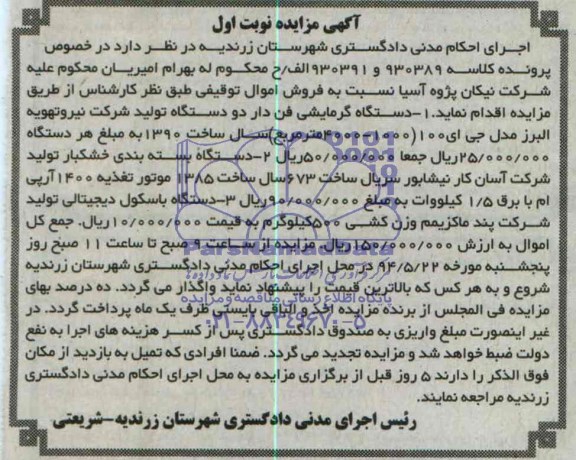 آگهی مزایده نوبت اول
اجرای احکام مدنی دادگستری شهرستان زرندیه در نظر دارد در خصوص
پرونده کلاسه ۹۳۰۳۸۹ و ۹۳۰۳۹۱الف/ح محکوم له بهرام امیریان محکوم علیه
شرکت نیکان پژوه آسیا نسبت به فروش اموال توقیفی طبق نظر کارشناس از طریق
مزایده اقدام نماید.۱-دستگاه گرمایشی فن دار دو دستگاه تولید شرکت نیروتهویه
البرز مدل جی ای۱۰۰(۴۰۰۰۰-۱۰۰۰مترمربع)سال ساخت ۱۳۹۰به مبلغ هر دستگاه
۲۵/۰۰۰/۰۰۰ریال جمعا ۵۰/۰۰۰/۰۰۰ریال ۲-دستگاه بسته بندی خشکبار تولید
شرکت آسان کار نیشابور سریال ساخت ۶۷۳سال ساخت ۱۳۸۵ موتور تغذیه ۱۴۰۰آرپی
ام با برق ۱/۵ کیلووات به مبلغ ۹۰/۰۰۰/۰۰۰ریال ۳-دستگاه باسکول دیجیتالی تولید
شرکت پند ماکزیمم وزن کشی ۵۰۰کیلوگرم به قیمت ۱۰/۰۰۰/۰۰۰ریال. جمع کل
اموال به ارزش ۱۵۰/۰۰۰/۰۰۰ریال. مزایده از ساعت ۹ صبح تا ساعت ۱۱ صبح روز
پنجشنبه مورخه ۹۴/۵/۲۲ در محل اجرای احکام مدنی دادگستری شهرستان زرندیه
شروع و به هر کس که بالاترین قیمت را پیشنهاد نماید واگذار می گردد. ده درصد بهای
مزایده فی المجلس از برنده مزایده اخذ و الباقی بایستی ظرف یک ماه پرداخت گردد. در
غیر اینصورت مبلغ واریزی به صندوق دادگستری پس از کسر هزینه های اجرا به نفع
دولت ضبط خواهد شد و مزایده تجدید می گردد. ضمنا افرادی که تمیل به بازدید از مکان
فوق الذکر را دارند ۵ روز قبل از برگزاری مزایده به محل اجرای احکام مدنی دادگستری
زرندیه مراجعه نمایند.
رئیس اجرای مدنی دادگستری شهرستان زرندیه-شریعتی
ParsNamadData
پایگاه اطلاع رسانی مناقصه و مزایده
۰۲۱-۸۸۳۴۹۶۷۰-۵